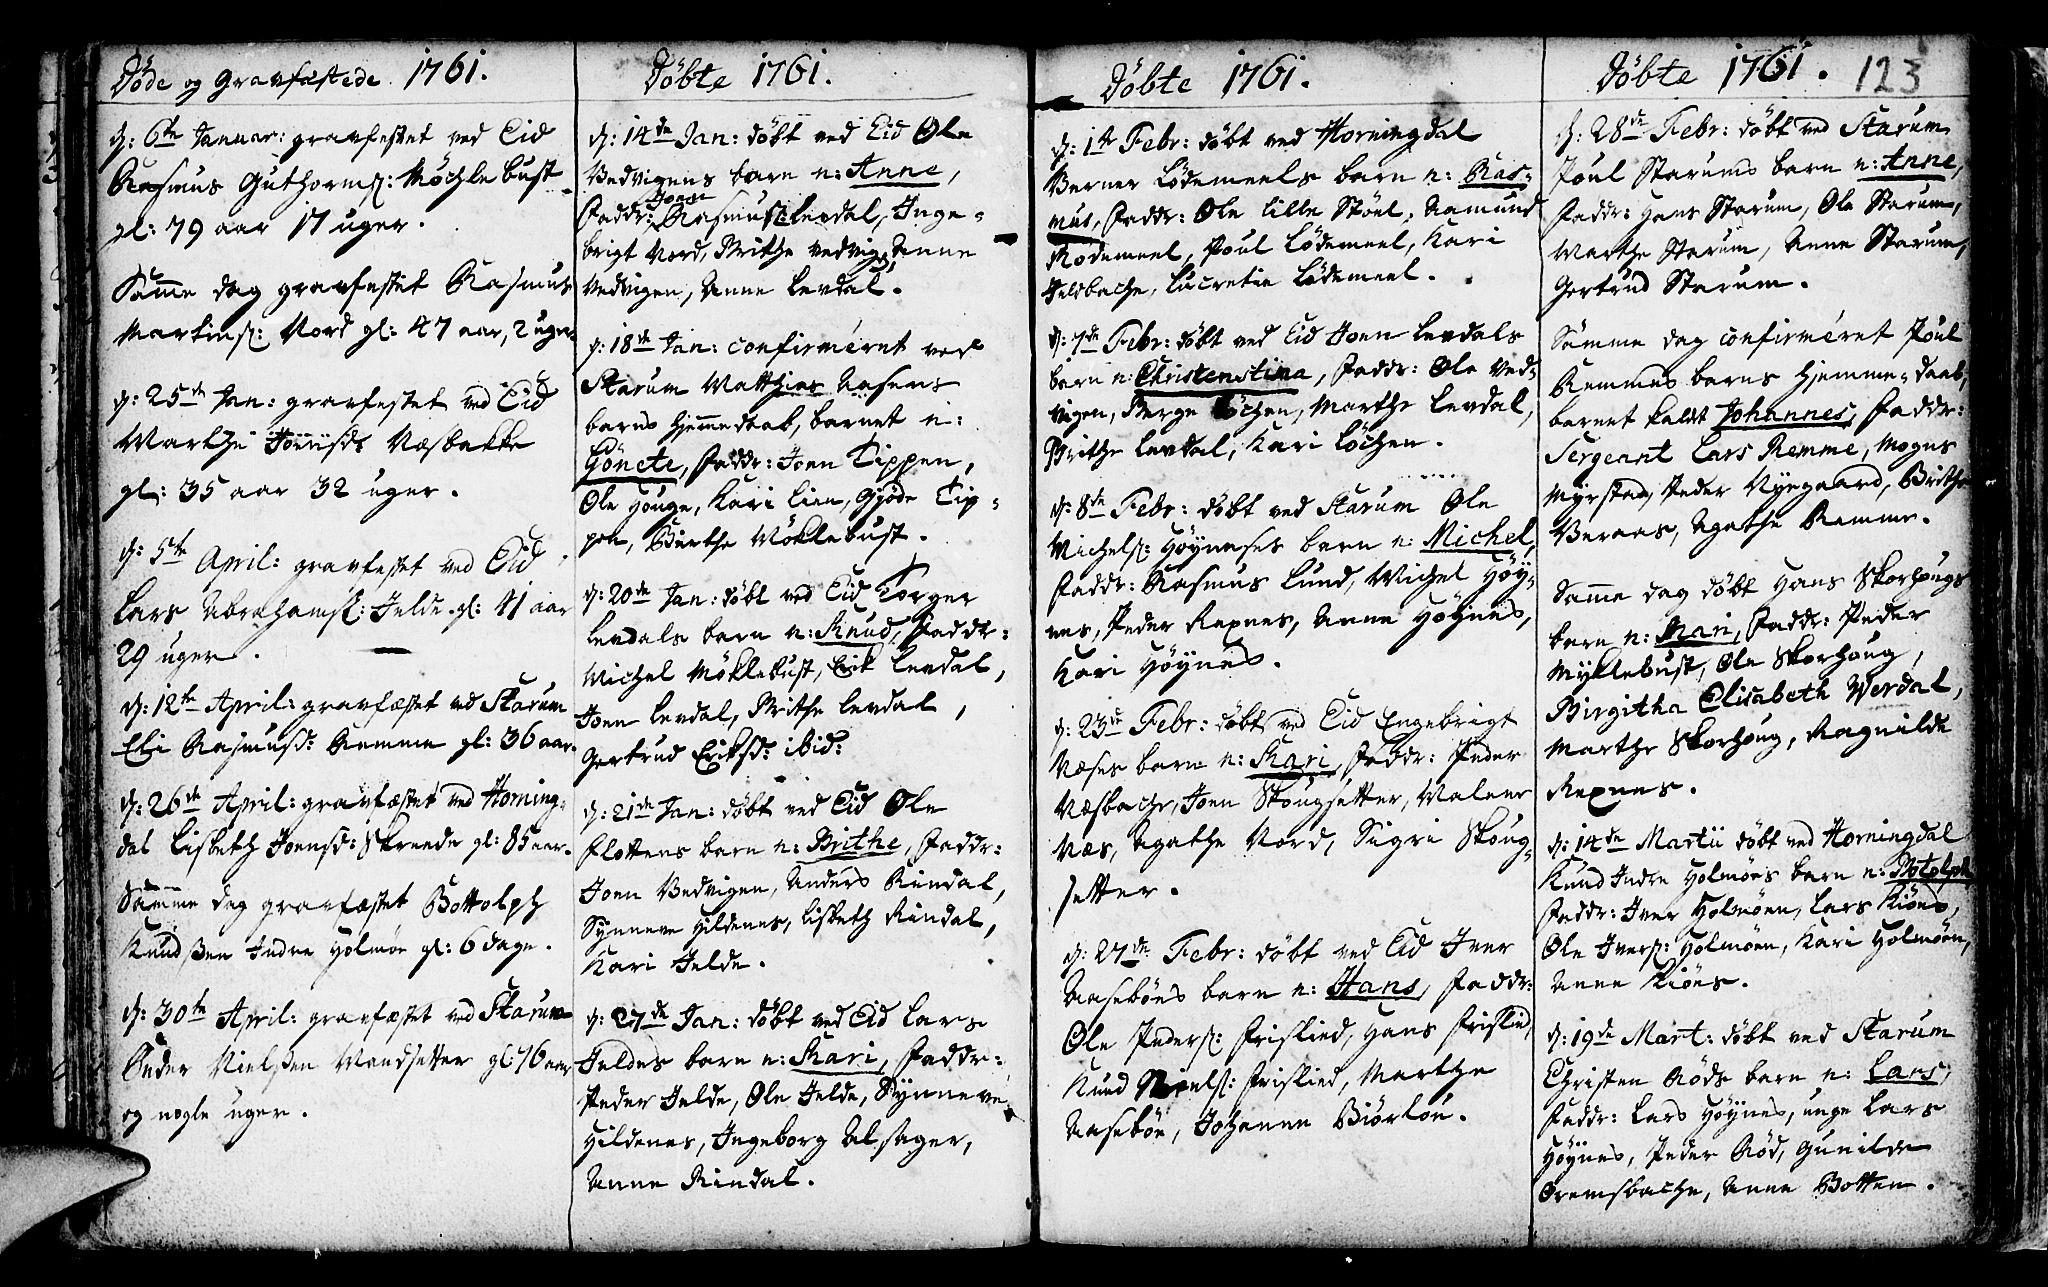 Døde og Gravfæstede 1761.
d: 6te Januar: gravfestet ved Eid
Rasmus Guthorms: Møchlebust
gl: 79 aar 17 uger.
Samme dag gravfestet Rasmus
Martins: Nord gl: 47 aar, 2 uger
d: 25de Jan: gravfestet ved Eid
Marthe Næsbakke
gl: 35 aar 32 uger.
d: 5te April: gravfestet ved Eid
Lars Abrahams: Jelde gl: 41 aar
29 uger.
d: 12te April: gravfæstet ved Starum
Eli Rasmusd: Remme gl: 36 aar.
d: 26de April: gravfæstet ved Horning-
dal Lisbeth Joensd: Skreede gl: 85 aar.
Samme dag gravfæstet Bottolph
Knudssen Indre Holmøe gl: 6 dage.
d: 30te April: gravfæstet ved Starum
Peder Nielssen Mandsetter gl: 76 aar
og nogle uger.
Døbte 1761.
d: 14de Jan: døbt ved Eid Ole
Vedvigens barn n: Anne,
Joen
Faddr: Rasmus: Levdal, Inge-
brigt Nord, Brithe Vedvig, Anne
Vedvigen, Anne Levdal.
d: 18de Jan: confirmeret ved
Starum Matthias Aasens
barns hjemmedaab, barnet n:
Gönete, Faddr: Joen Tippen,
Ole Houge, Kari Lien, Gjøde Tip-
pen, Birthe Möklebust.
d: 20de Jan: døbt ved Eid Torger
Levdals barn n: Knud, Faddr:
Michel Möklebust, Erik Levdal,
Joen Levdal, Brithe Levdal,
Gertrud Eriksd: ibid:
d: 21de Jan: døbt ved Eid Ole
Flottens barn n: Brithe, Faddr:
Joen Vedvigen, Anders Rindal,
Synneve Hildenes, Lisbeth Rindal,
Kari Jelde.
d: 27de Jan: døbt ved Eid Lars
Jeldes barn n: Kari, Faddr:
Peder Jelde, Ole Jelde, Synneve
Hildenes, Ingeborg Alsager,
Anne Rindal.
Døbte 1761.
d: 1te Febr: døbt ved Horningdal
Verner Lødemeels barn n: Ras-
mus, Faddr: Ole Lille Støel, Aamund
Rodemeel, Poul Lødemeel, Kari
Jeldbache, Lucretia Lødemeel.
d: 7de Febr: døbt ved Eid Joen Levdals
barn n: Christenstina, Faddr: Ole Ved-
vigen, Børge Løchen, Marthe Levdal,
Brithe Levdal, Kari Løchen.
d: 8de Febr: døbt ved Starum Ole
Michels: Høyneses barn n: Michel,
Faddr: Rasmus Lund, Michel Høy-
nes, Peder Rexnes, Anne Høynes,
Kari Høynes.
d: 23de Febr: døbt ved Eid Engebrigt
Næses barn n: Kari, Faddr: Peder
Næsbache, Joen Skougsetter,
Næs, Agathe Nord, Sigri Skoug-
setter.
d: 27de Febr: døbt ved Eid Iver
Aasebøes barn n: Hans, Faddr:
Ole Peders: Frislied, Hans Frislied,
Knud Niels: Frislied, Marthe
Aasebøe, Johanne Biørløe.
Døbte 1761. 123
d: 28de Febr: døbt ved Starum
Poul Starums barn n: Anne,
Faddr: Hans Starum, Ole Starum,
Marthe Starum, Anne Starum,
Gertrud Starum.
Samme dag confirmeret Poul
Remmes barns hjemme-daab,
barnet kaldt Johannes, Faddr:
Sergeant Lars Remme, Mogns
Myrstad, Peder Nyegaard, Brithe
Veraas, Agathe Remme.
Samme dag døbt Hans Skorhougs
barn n: Kari, Faddr: Peder
Myklebust, Ole Skorhoug,
Birgitha Elisabeth Werdal,
Marthe Skorhoug, Ragnilde
Rexnes.
d: 14de Martii døbt ved Horningdal
Knud Indre Holmøes barn n: Botolph
Faddr: Iver Holmøen, Lars Kiøes,
Ole Ivers: Holmøen, Kari Holmøen,
Anne Kiøes.
d: 19de Mart: døbt ved Starum
Christen Røds barn n: Lars,
Faddr: Lars Høynes, unge Lars
Høynes, Peder Rød, Gunilde
Oremsbache, Anne Botten.